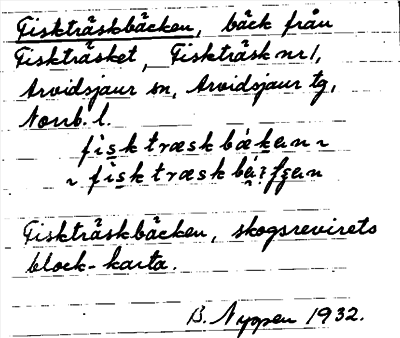 Fiskträskbäcken, bäck från
Fiskträsket, Fiskträsk nr 1,
Arvidsjaur sn, Arvidsjaur tg,
Norrb. l.
fìsktræskbǽkan ~
~ fìsktræskb
Fiskträskbäcken, skogsrevirets
block-karta.
B. Nyppen 1932.